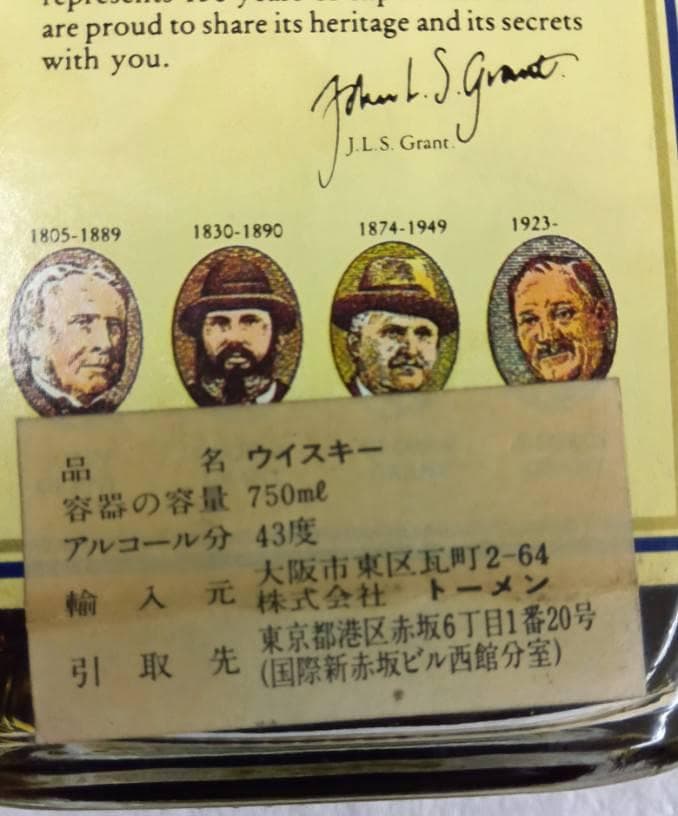 are proud to share its heritage and its secrets
with you.
John L. S. Grant.
J.L.S. Grant.
1805-1889 1830-1890 1874-1949 1923-
品名 ウイスキー
容器の容量 750mℓ
アルコール分 43度
輸入元 大阪市東区瓦町2-64
株式会社 トーメン
引取先 東京都港区赤坂6丁目1番20号
(国際新赤坂ビル西館分室)